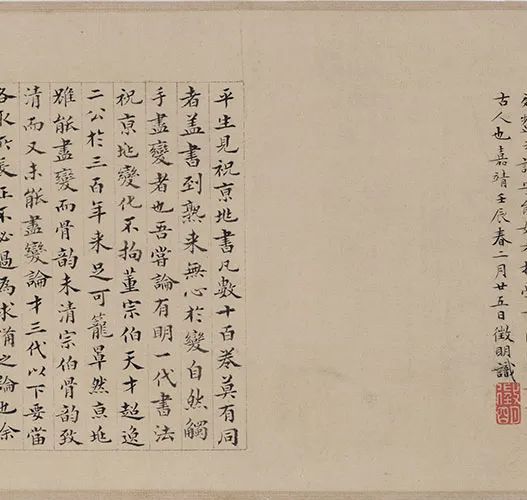 古人也嘉靖壬辰春二月廿五日徵明識
徵明
平生見祝京兆書凡數十百卷莫有同
者蓋書到熟來無心於變自然觸
手盡變者也吾嘗論有明一代書法
祝京兆變化不拘董宗伯天才超逸
二公於三百年来足可籠罩然京兆
雖能盡變而骨韵未清宗伯骨韵致
清而又未能盡變論才三代以下要當
各取所長正不必過為求備之論也余